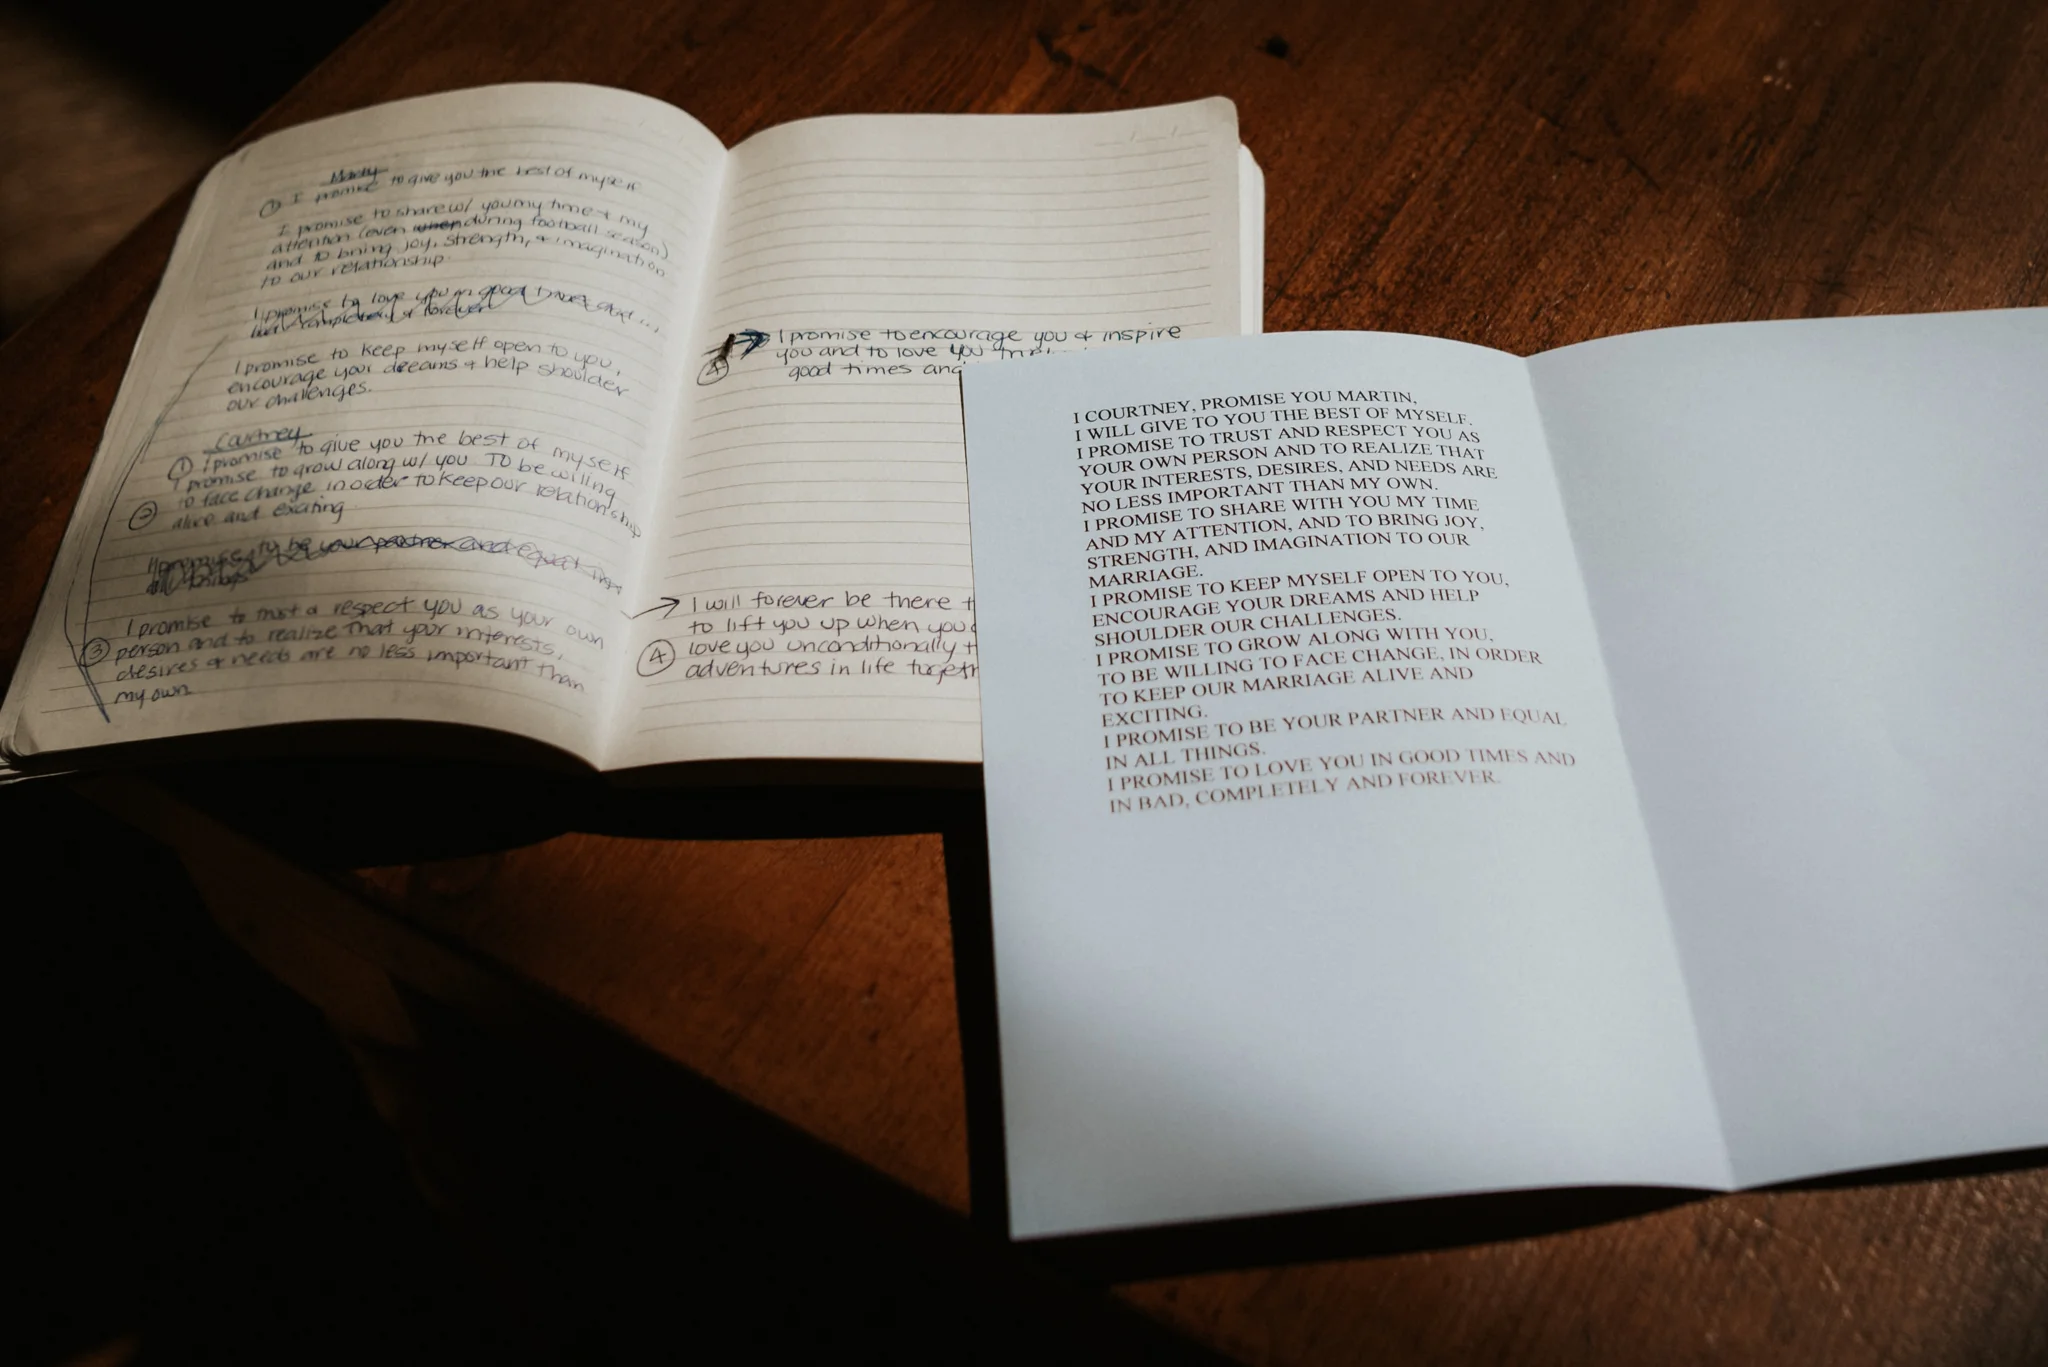 Marty
① I promise to give you the best of myself
I promise to share w/ you my time + my
attention (even when during football season)
and to bring joy, strength, + imagination
to our relationship.
I promise to love you in good times and
completely & forever
I promise to keep myself open to you,
encourage your dreams + help shoulder
our challenges.
Courtney
① I promise to give you the best of myself
I promise to grow along w/ you To be willing
② to face change in order to keep our relationship
alive and exciting
I promise to be your partner and equal in
things
I promise to trust & respect you as your own
③ person and to realize that your interests,
desires & needs are no less important than
my own
I promise to encourage you & inspire
④ you and to love you
good times and
I will forever be there
to lift you up when you
④ love you unconditionally
adventures in life together
I COURTNEY, PROMISE YOU MARTIN,
I WILL GIVE TO YOU THE BEST OF MYSELF.
I PROMISE TO TRUST AND RESPECT YOU AS
YOUR OWN PERSON AND TO REALIZE THAT
YOUR INTERESTS, DESIRES, AND NEEDS ARE
NO LESS IMPORTANT THAN MY OWN.
I PROMISE TO SHARE WITH YOU MY TIME
AND MY ATTENTION, AND TO BRING JOY,
STRENGTH, AND IMAGINATION TO OUR
MARRIAGE.
I PROMISE TO KEEP MYSELF OPEN TO YOU,
ENCOURAGE YOUR DREAMS AND HELP
SHOULDER OUR CHALLENGES.
I PROMISE TO GROW ALONG WITH YOU,
TO BE WILLING TO FACE CHANGE, IN ORDER
TO KEEP OUR MARRIAGE ALIVE AND
EXCITING.
I PROMISE TO BE YOUR PARTNER AND EQUAL
IN ALL THINGS.
I PROMISE TO LOVE YOU IN GOOD TIMES AND
IN BAD, COMPLETELY AND FOREVER.